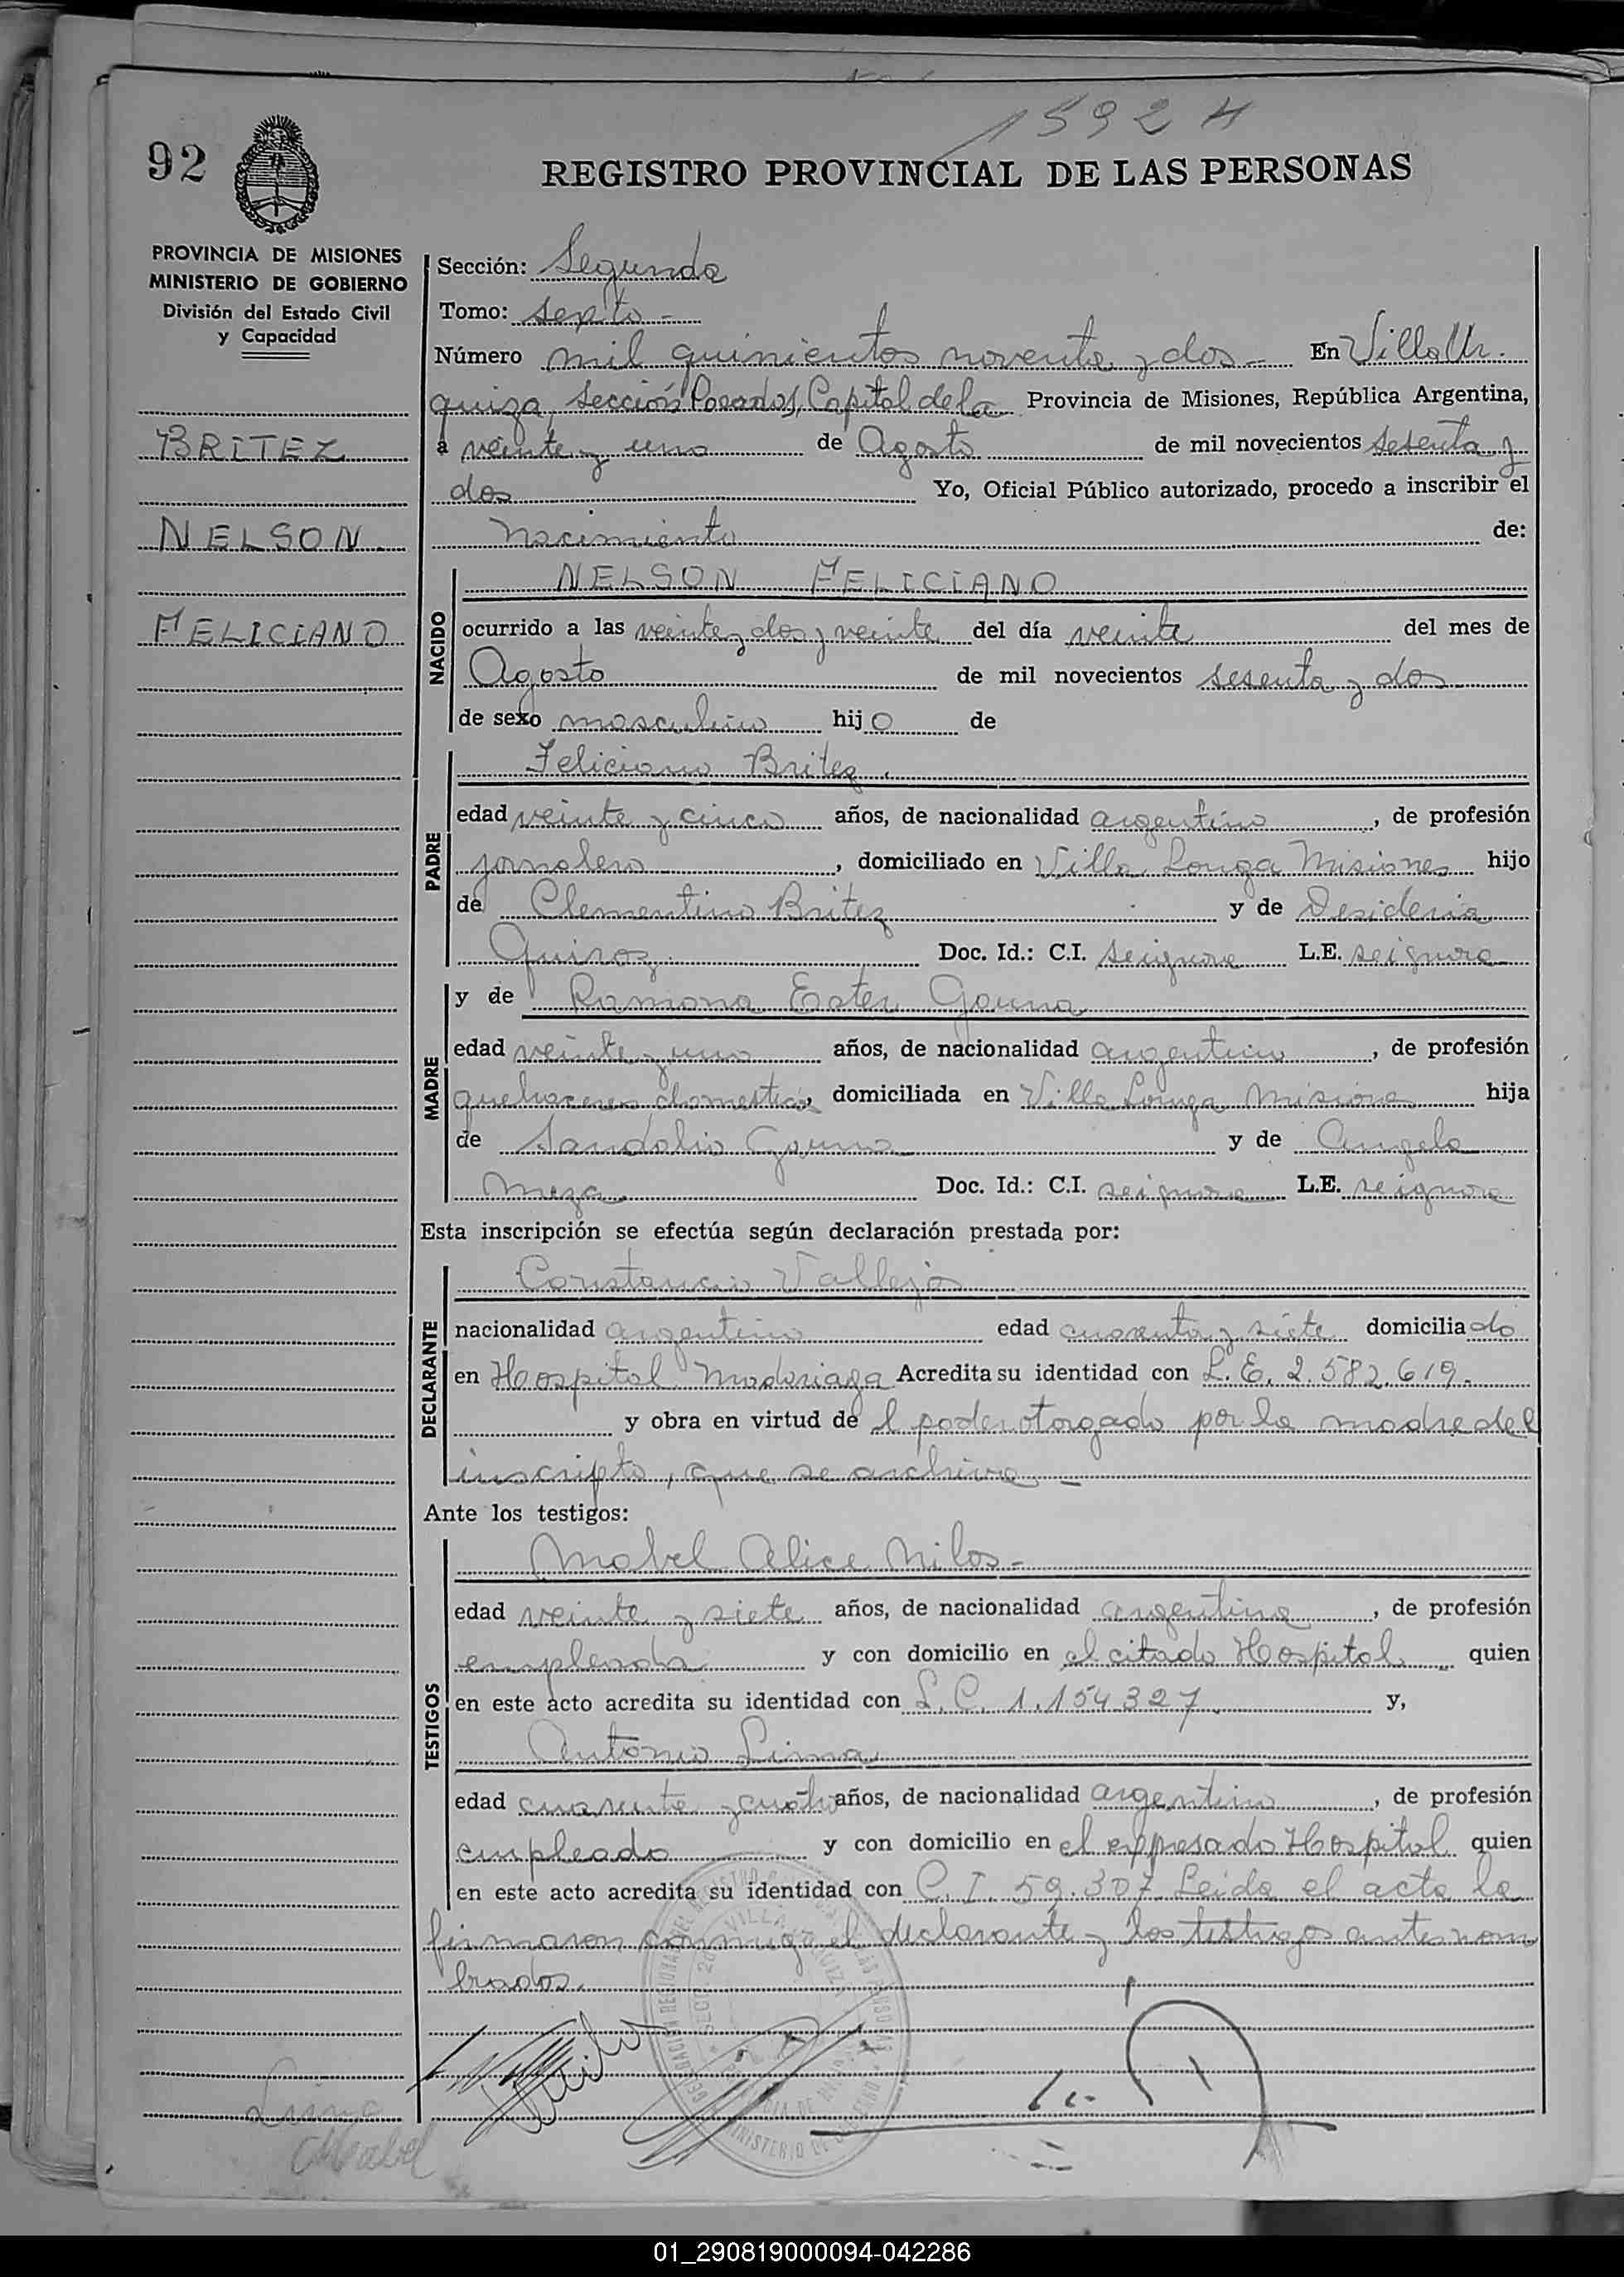 1592 H
92
REGISTRO PROVINCIAL DE LAS PERSONAS
PROVINCIA DE MISIONES
MINISTERIO DE GOBIERNO
División del Estado Civil
y Capacidad
BRITEZ
NELSON
FELICIANO
Sección: Segunda
Tomo: sexto -
Número mil quinientos noventa y dos - En Villa Ur-
quiza, Sección Posadas, Capital de la Provincia de Misiones, República Argentina,
a veinte y uno de Agosto de mil novecientos setenta y
dos Yo, Oficial Público autorizado, procedo a inscribir el
Nacimiento de:
NACIDO
NELSON FELICIANO
ocurrido a las veinte y dos y veinte del día veinte del mes de
Agosto de mil novecientos sesenta y dos
de sexo masculino hijo de
PADRE
Feliciano Britez.
edad veinte y cinco años, de nacionalidad argentino, de profesión
jornalero, domiciliado en Villa Longa Misiones hijo
de Clementino Britez y de Desideria
Quiroz Doc. Id.: C.I. se ignora L.E. se ignora
MADRE
y de Ramona Ester Gauna
edad veinte y uno años, de nacionalidad argentina, de profesión
quehaceres domestica, domiciliada en Villa Longa Misiones hija
de Sandalio Gauna y de Angela
Meza Doc. Id.: C.I. se ignora L.E. se ignora
Esta inscripción se efectúa según declaración prestada por:
DECLARANTE
Constancio Vallejos
nacionalidad argentino edad cuarenta y siete domiciliado
en Hospital Madariaga Acredita su identidad con L.E. 2.582.619.
y obra en virtud del poder otorgado por la madre del
inscripto, que se archiva -
Ante los testigos:
TESTIGOS
Mabel Alice Milos -
edad veinte y siete años, de nacionalidad argentina, de profesión
empleada y con domicilio en el citado Hospital quien
en este acto acredita su identidad con L.C. 1.154327 y,
Antonio Lima
edad cuarenta y cuatro años, de nacionalidad argentino, de profesión
empleado y con domicilio en el expresado Hospital quien
en este acto acredita su identidad con C.I. 59.307 Leida el acta la
firmaron conmigo el declarante y los testigos antes nom
brados.
Lima
Mabel
01_290819000094-042286